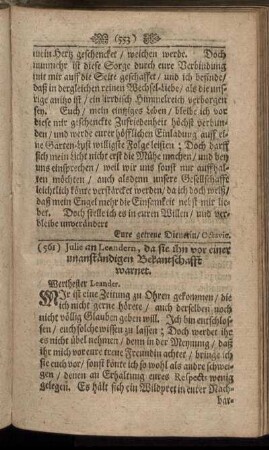 (553)
mein Hertz geschencket / weichen werde. Doch
nunmehr ist diese Sorge durch eure Verbindung
mit mir auff die Seite geschaffet / und ich befinde /
daß in dergleichen reinen Wechsel-Liebe / als die uns-
rige anitzo ist / ein irrdisch Himmelreich verborgen
sey. Euch / mein eintziges Leben / bleibe ich vor
diese mir geschenckte Zufriedenheit höchst verbun-
den / und werde eurer höfflichen Einladung auff ei-
ne Garten-Lust willigste Folge leisten; Doch darff
sich mein Licht nicht erst die Mühe machen / und bey
uns einsprechen / weil wir uns sonst nur auffhal-
ten möchten / auch alsdenn unsere Gesellschafft
leichtlich könte verstärcket werden / da ich doch weiß /
daß mein Engel mehr die Einsamkeit nebst mir lie-
bet. Doch stelle ich es in euren Willen / und ver-
bleibe unverändert
Eure getreue Dienerin / Octavie.
(561) Julie an Leandern, da sie ihn vor einer
unanständigen Bekantschafft
warnet.
Werthester Leander.
MIr ist eine Zeitung zu Ohren gekommen / die
ich nicht gerne hörete / auch derselben noch
nicht völlig Glauben geben will. Ich bin entschlos-
sen / euch solche wissen zu lassen; Doch werdet ihr
es nicht übel nehmen / denn in der Meynung / daß
ihr mich vor eure treue Freundin achtet / bringe ich
sie euch vor / sonst könte ich so wohl als andre schwei-
gen / denen an Erhaltung eures Respects wenig
gelegen. Es hält sich ein Wildpret in eurer Nach-
bar-